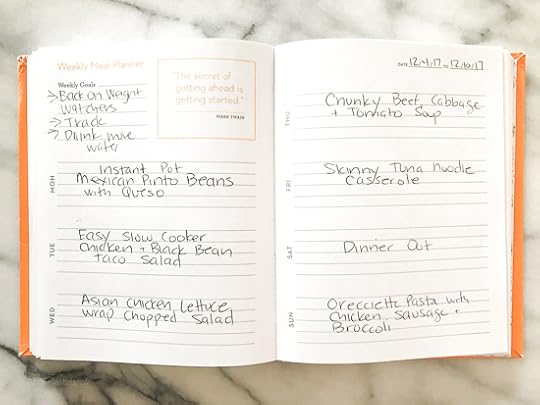 Weekly Meal Planner
Weekly Goals
→ Back on Weight
Watchers
→ Track
→ Drink more
water
"The secret of
getting ahead is
getting started."
MARK TWAIN
MON
Instant Pot
Mexican Pinto Beans
with Queso
TUE
Easy Slow Cooker
Chicken + Black Bean
Taco Salad
WED
Asian Chicken Lettuce
Wrap Chopped Salad
DATE 12/4/17 TO 12/10/17
THU
Chunky Beef, Cabbage
+ Tomato Soup
FRI
Skinny Tuna Noodle
Casserole
SAT
Dinner Out
SUN
Orecciette Pasta with
Chicken Sausage +
Broccoli